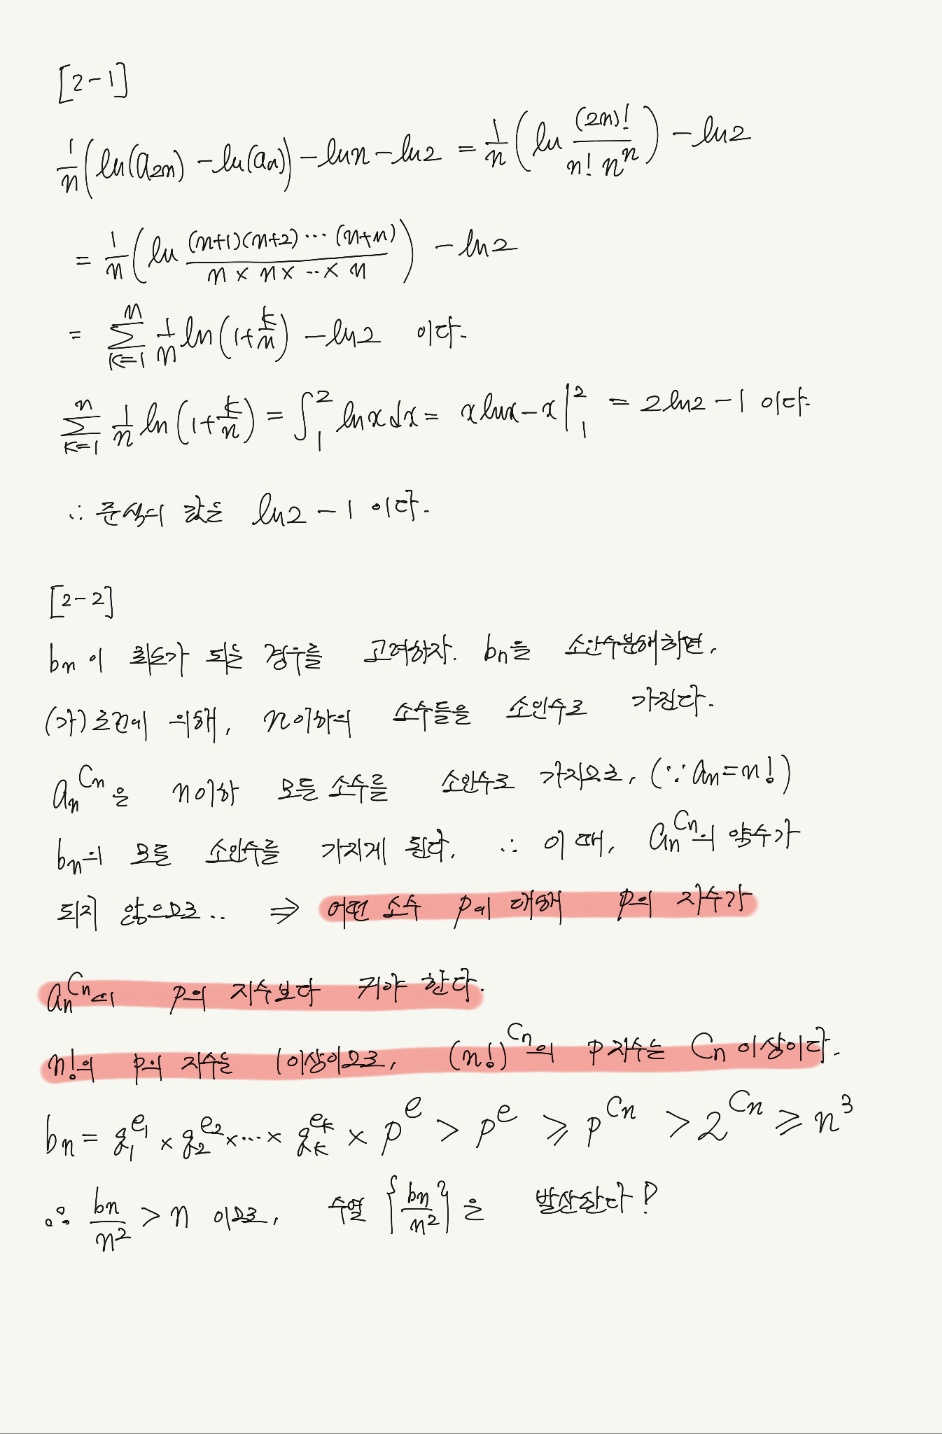 [2-1]
1/n (ln(a_{2n}) - ln(a_n)) - ln n - ln2 = 1/n (ln (2n)!/(n! n^n)) - ln2
= 1/n (ln (n+1)(n+2)⋯(n+n)/(n × n × ⋯ × n)) - ln2
= ∑_{k=1}^{n} 1/n ln(1+k/n) - ln2 이다.
∑_{k=1}^{n} 1/n ln(1+k/n) = ∫_1^2 lnx dx = xlnx-x|_1^2 = 2ln2-1 이다.
∴ 준식의 값은 ln2-1 이다.
[2-2]
b_n이 최소가 되는 경우를 고려하자. b_n을 소인수분해하면,
(가)조건에 의해, n이하의 소수들을 소인수로 가진다.
a_n^{C_n}은 n이하 모든 소수를 소인수로 가지므로, (∵ a_n=n!)
b_n의 모든 소인수를 가지게 된다. ∴ 이 때, a_n^{C_n}의 약수가
되지 않으므로.. ⇒ 어떤 소수 p에 대해 p의 지수가
a_n^{C_n}의 p의 지수보다 커야 한다.
n!의 p의 지수는 1이상이므로, (n!)^{C_n}의 p지수는 C_n이상이다.
b_n = q_1^{e_1} × q_2^{e_2} × ⋯ × q_k^{e_k} × p^e > p^e ≥ p^{C_n} > 2^{C_n} ≥ n^3
∴ b_n/n^2 > n 이므로, 수열 {b_n/n^2}은 발산한다?